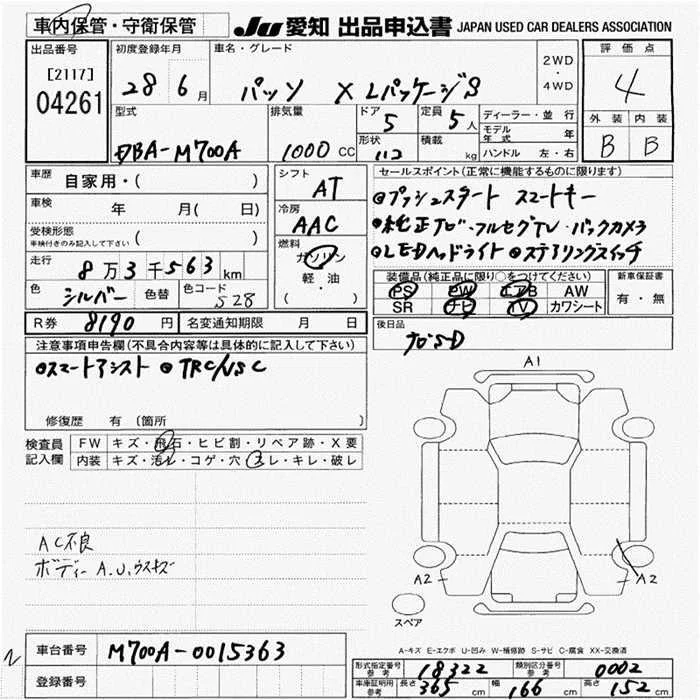 車内保管・守衛保管
Ju 愛知 出品申込書 JAPAN USED CAR DEALERS ASSOCIATION
出品番号
[2117]
04261
初度登録年月
28 6月
車名・グレード
パッソ X Lパッケージ S
2WD
・
4WD
評価点
4
外装 内装
B B
型式
DBA-M700A
排気量
1000 CC
ドア
5
形状
112
定員
5人
積載
kg
ディーラー・並行
モデル年式 年
ハンドル 左・右
車歴
自家用・( )
車検
年 月( 日)
受検形態
車検付きのみ記入して下さい ( )
走行
8万3千563km
色
シルバー
色替
色コード
S28
R券 8190 円
名変通知期限 月 日
シフト
AT
冷房
AAC
燃料
ガソリン
軽・油
( )
セールスポイント(正常に機能するものに限ります)
◎プッシュスタート スマートキー
◎純正ナビ・フルセグTV・バックカメラ
◎LEDヘッドライト ◎ステアリングスイッチ
装備品(純正品に限り○をつけてください)
PS PW エアB AW
SR ナビ TV カワシート
新車保証書
有・無
後日品
ナビSD
注意事項申告欄(不具合内容等は具体的に記入して下さい)
◎スマートアシスト ◎TRC/VSC
修復歴 有 (箇所 )
検査員
記入欄
FW キズ・飛石・ヒビ割・リペア跡・X要
内装 キズ・汚レ・コゲ・穴・スレ・キレ・破レ
AC不良
ボディー A.U.ウスキズ
A1
A2
A2
スペア
A-キズ E-エクボ U-凹み W-補修跡 S-サビ C-腐食 XX-交換済
車台番号 M700A-0015363
登録番号
型式指定番号 参考 18322
類別区分番号 参考 0002
車庫証明用 参考 長さ 365 cm 幅 166 cm 高さ 152 cm